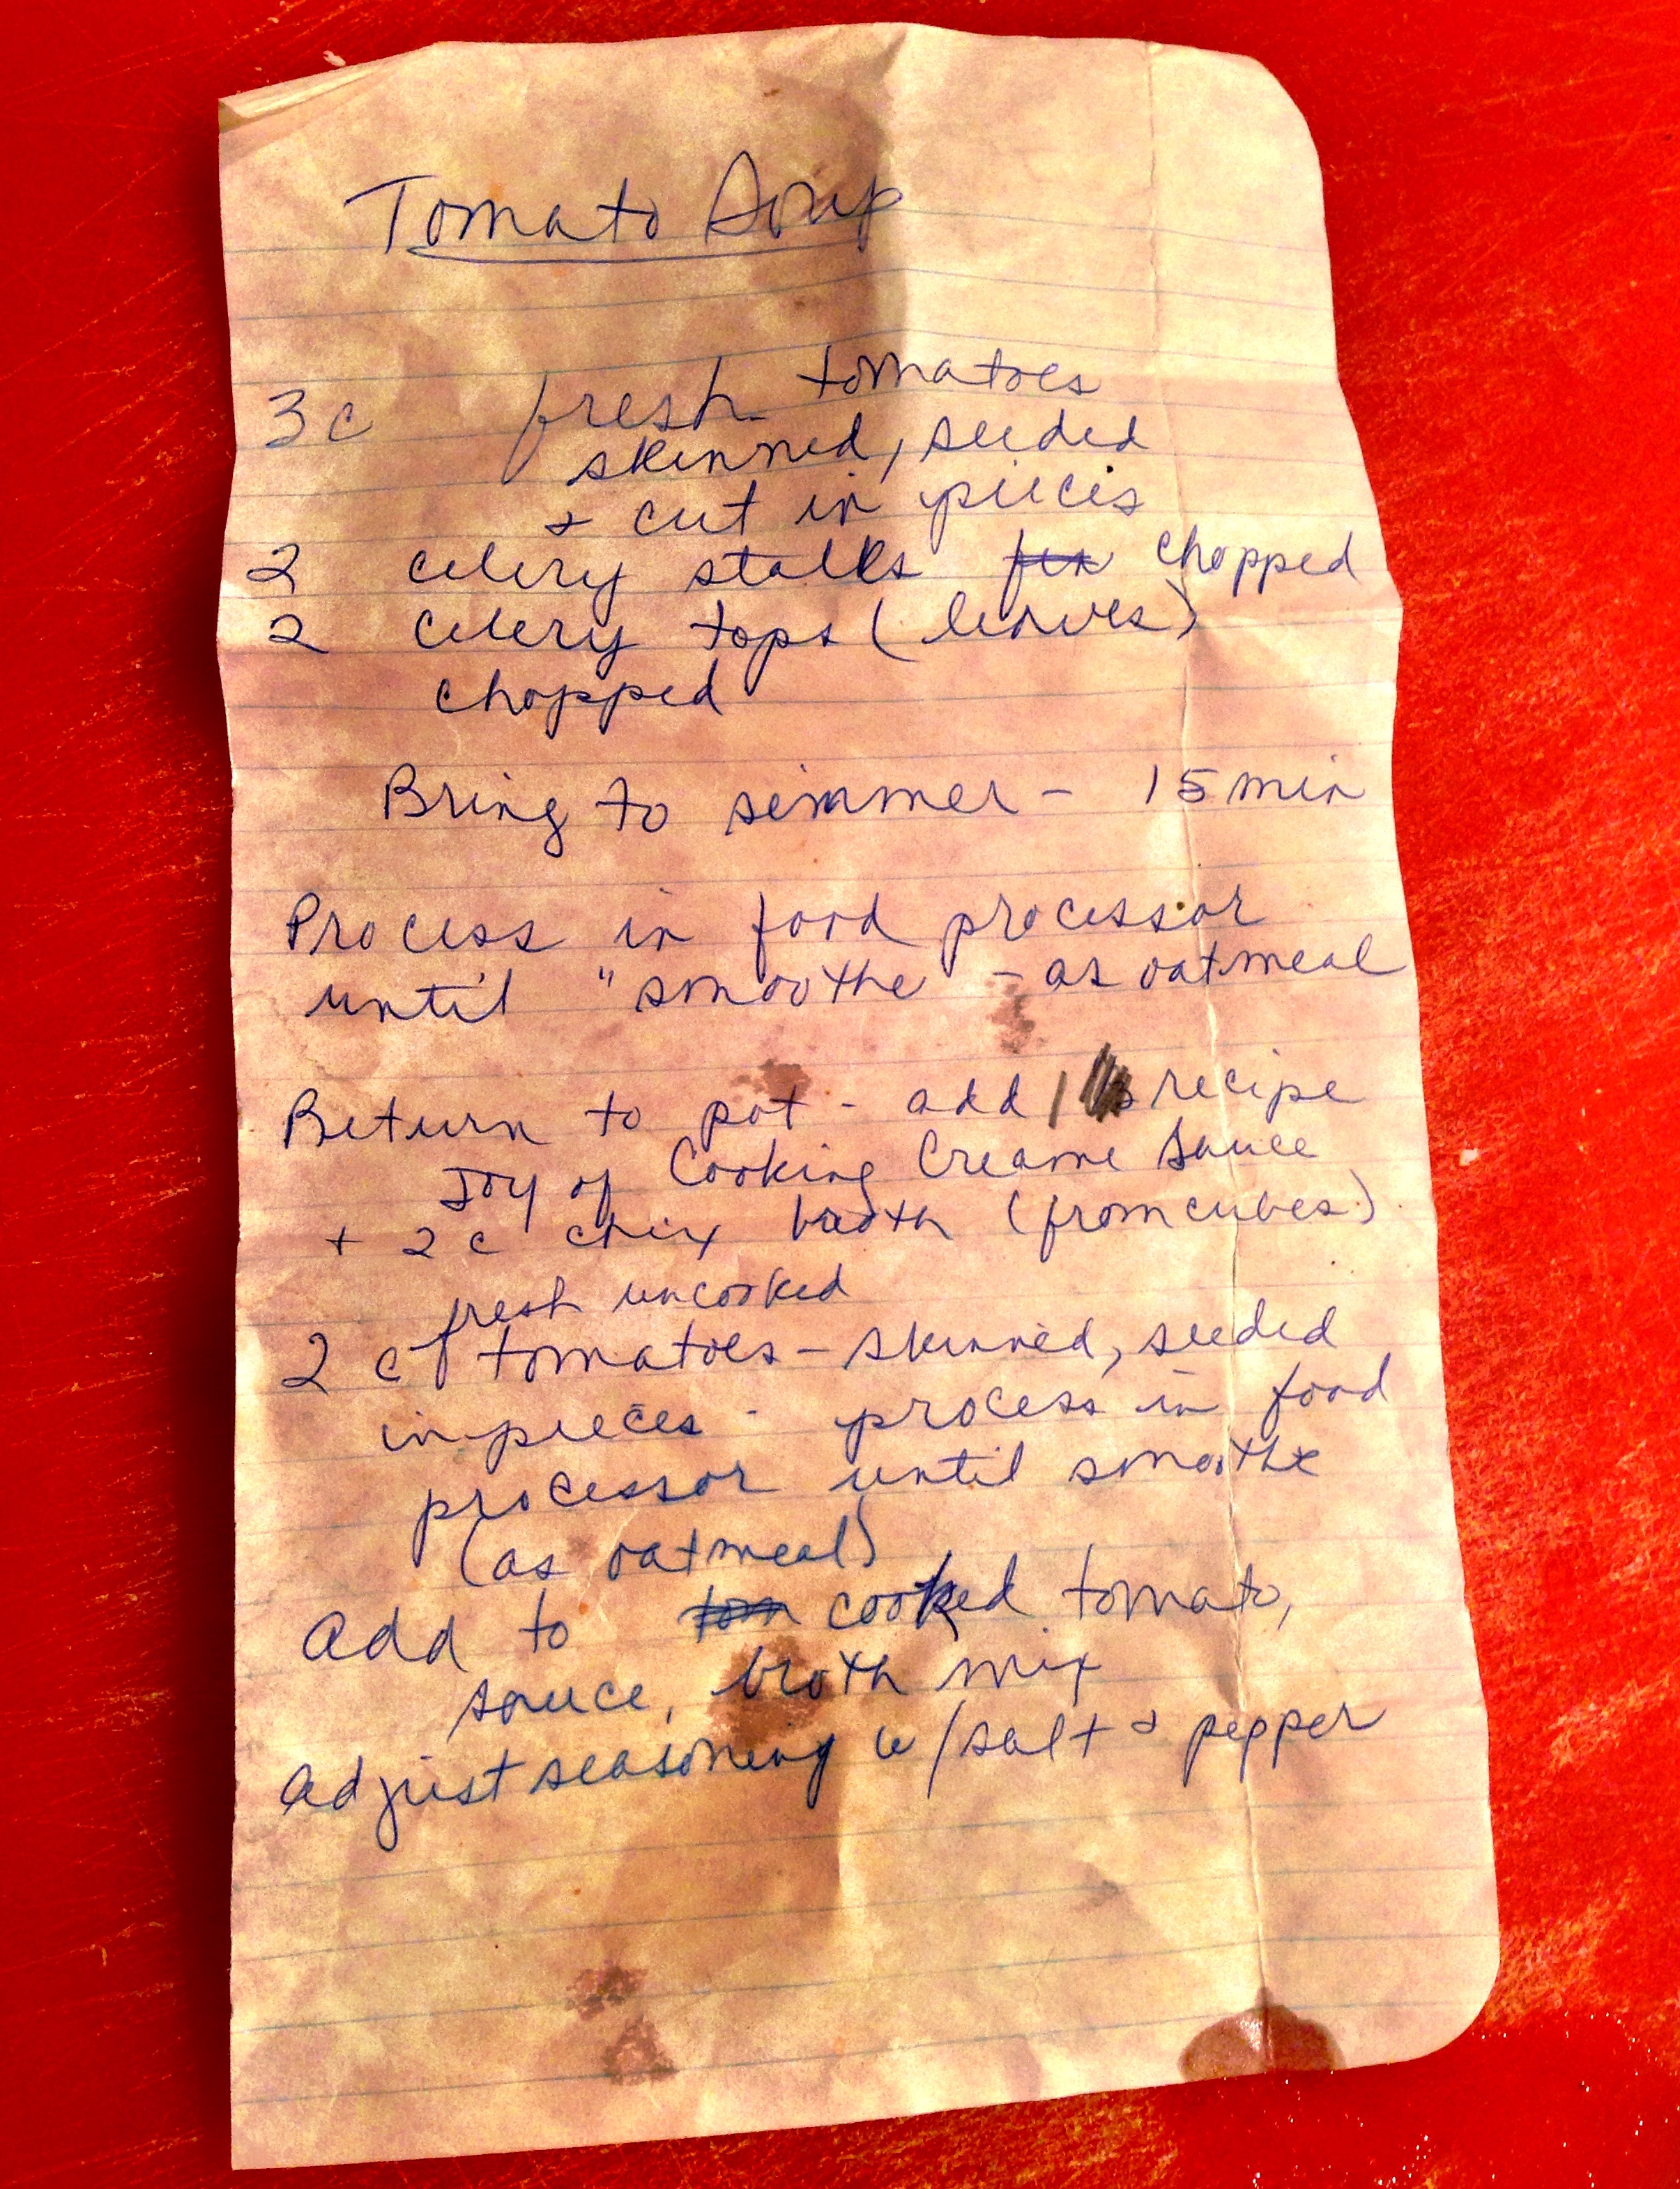 Tomato Soup
3c fresh tomatoes
skinned, seeded
& cut in pieces
2 celery stalks chopped
2 celery tops (leaves)
chopped
Bring to simmer - 15 min
Process in food processor
until "smoothe - as oatmeal
Return to pot - add 1 recipe
Joy of Cooking Creame Sauce
+ 2 c chix broth (from cubes)
fresh uncooked
2 c tomatoes - skinned, seeded
in pieces - process in food
processor until smoothe
(as oatmeal)
Add to cooked tomato,
sauce, broth mix
Adjust seasoning w/salt & pepper